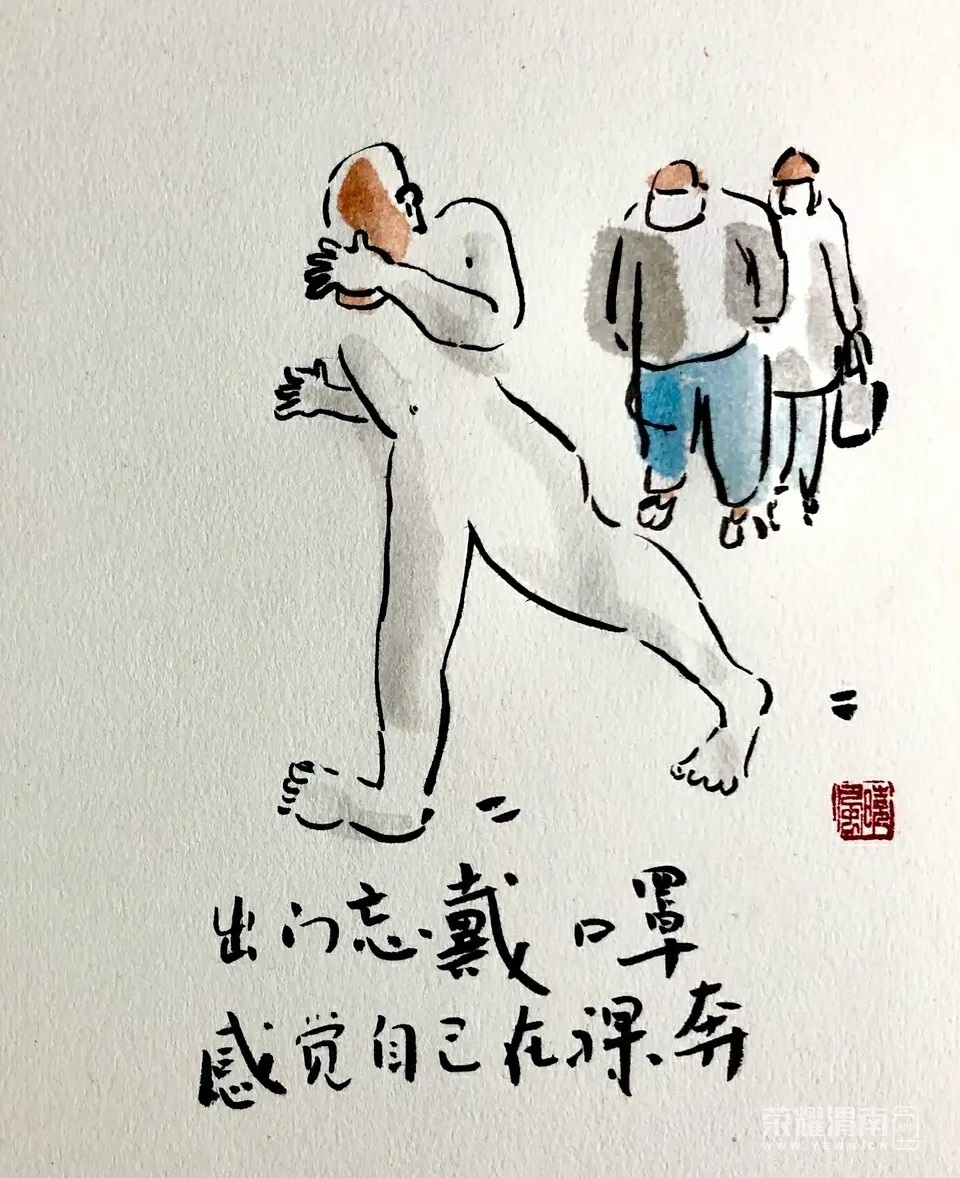 出门忘戴口罩
感觉自己在裸奔
荣耀渭南
WWW.YEWN.CN